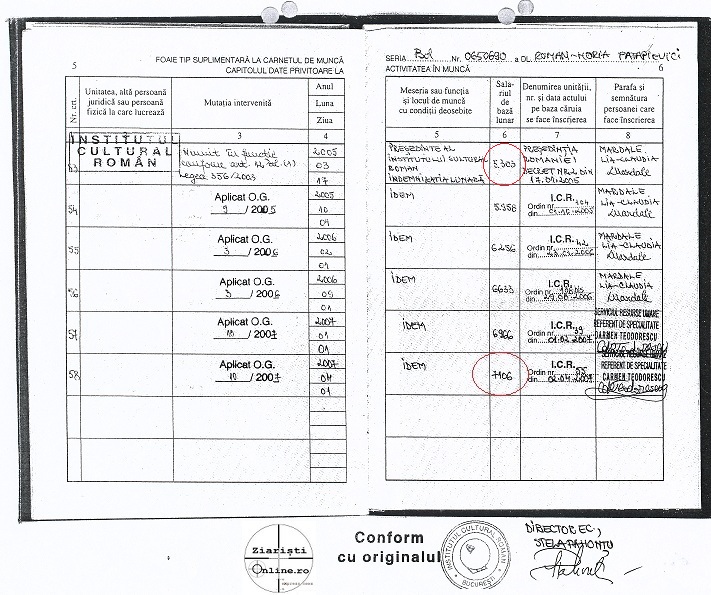 5
FOAIE TIP SUPLIMENTARĂ LA CARNETUL DE MUNCĂ
CAPITOLUL DATE PRIVITOARE LA
Nr. crt.
Unitatea, altă persoană
juridică sau persoană
fizică la care lucrează
Mutația intervenită
Anul
Luna
Ziua
3
4
INSTITUTUL
CULTURAL
ROMÂN
53
Numit în funcție
conform art. 12 al. (1)
Legea 356/2003
2005
03
17
54
Aplicat O.G.
9 / 2005
2005
10
01
55
Aplicat O.G.
3 / 2006
2006
02
01
56
Aplicat O.G.
3 / 2006
2006
09
01
57
Aplicat O.G.
10 / 2007
2007
01
01
58
Aplicat O.G.
10 / 2007
2007
04
01
SERIA Bd Nr. 0650690 a DL. ROMAN-HORIA PATAPIEVICI
ACTIVITATEA ÎN MUNCĂ 6
Meseria sau funcția
și locul de muncă
cu condiții deosebite
Sala-
riul
de
bază
lunar
Denumirea unității,
nr. și data actului
pe baza căruia
se face înscrierea
Parafa și
semnătura
persoanei care
face înscrierea
5
6
7
8
PREȘEDINTE AL
INSTITUTULUI CULTURAL
ROMAN
INDEMNIZATIA LUNARĂ
5.303
PREȘEDINȚIA
ROMANIEI
DECRET NR. 2 DIN
17.01.2005
MARDALE
LIA-CLAUDIA
Mardale
IDEM
5.356
I.C.R.
Ordin nr. 104
din
MARDALE
LIA-CLAUDIA
Mardale
IDEM
6256
I.C.R.
Ordin nr. 42
din
MARDALE
LIA-CLAUDIA
Mardale
IDEM
6633
I.C.R.
Ordin nr.
din
MARDALE
LIA-CLAUDIA
Mardale
IDEM
6966
I.C.R.
Ordin nr. 39
din 01.02.2007
SERVICIUL RESURSE UMANE
REFERENT DE SPECIALITATE
CARMEN TEODORESCU
IDEM
7106
I.C.R.
Ordin nr.
din 02.04.2007
SERVICIUL RESURSE UMANE
REFERENT DE SPECIALITATE
CARMEN TEODORESCU
Ziariști
Online.ro
Conform
cu originalul
INSTITUTUL CULTURAL ROMÂN
BUCUREȘTI
DIRECTOR EC.,
STELA PAHONTU